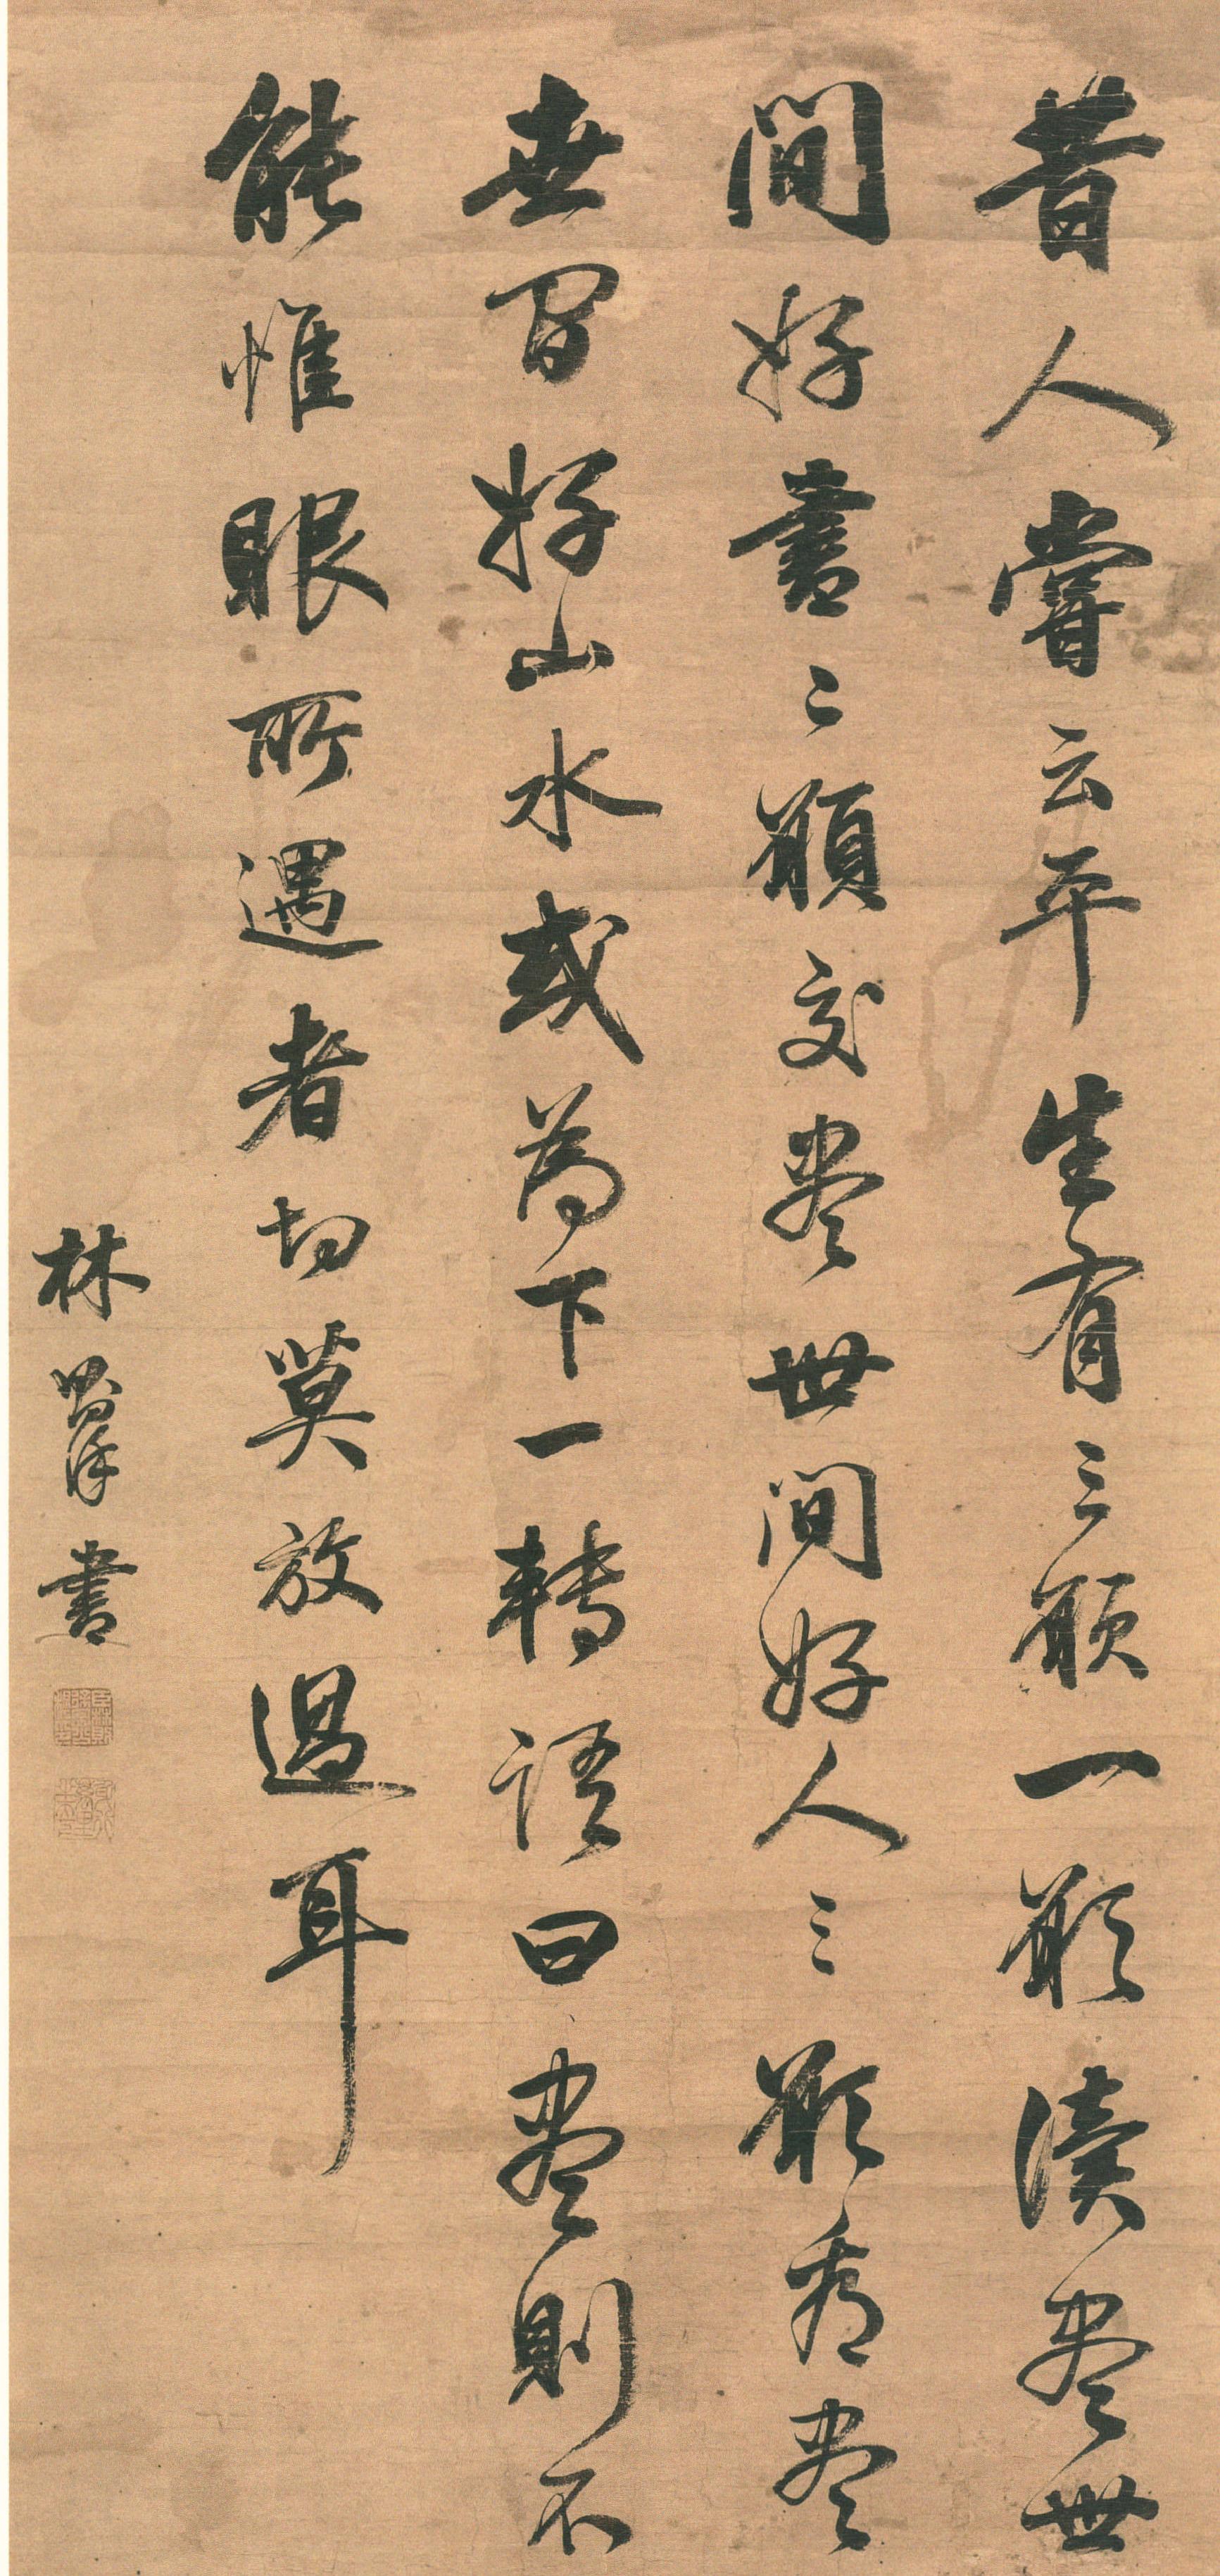 昔人嘗云平生有三願一願讀盡世
間好書二願交盡世間好人三願看盡
世間好山水或為下一轉語曰盡則不
能惟眼所遇者切莫放過耳
林佶書